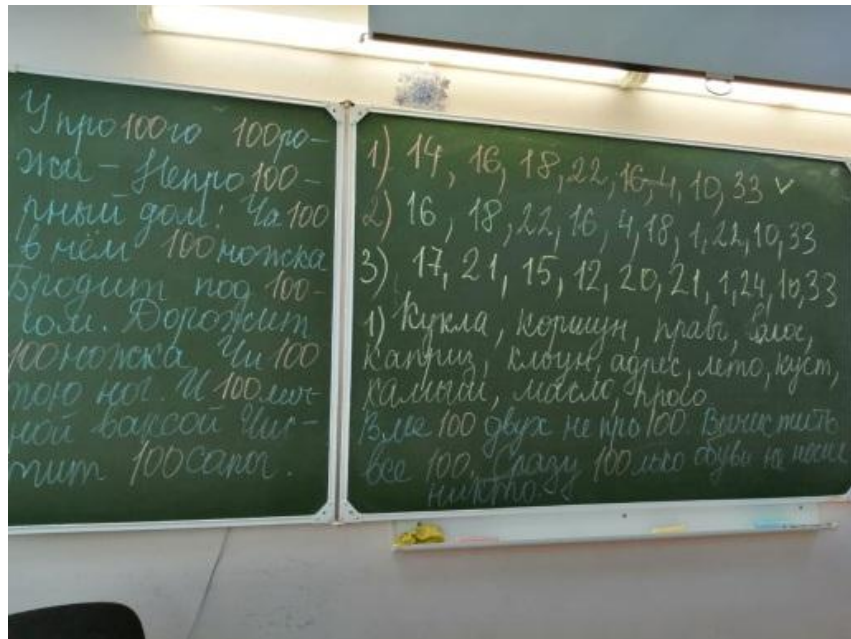 У про100го 100ро-
жа - Непро100-
рный дом: Ча100
в нём 100ножка
Бродит под 100-
лом. Дорожит
100ножка Чи100
тою ног. И 100лич-
ной ваксой Чис-
тит 100сапог.
1) 14, 16, 18, 22, 16, 4, 10, 33 ✓
2) 16, 18, 22, 16, 4, 18, 1, 22, 10, 33
3) 17, 21, 15, 12, 20, 21, 1, 24, 10, 33
1) Кукла, коршун, право, голос,
каприз, клоун, адрес, лето, куст,
камыш, масло, просо.
Вме100 двух не про100 Вычистить
все 100. Сразу 100лько обуви не носил
никто.